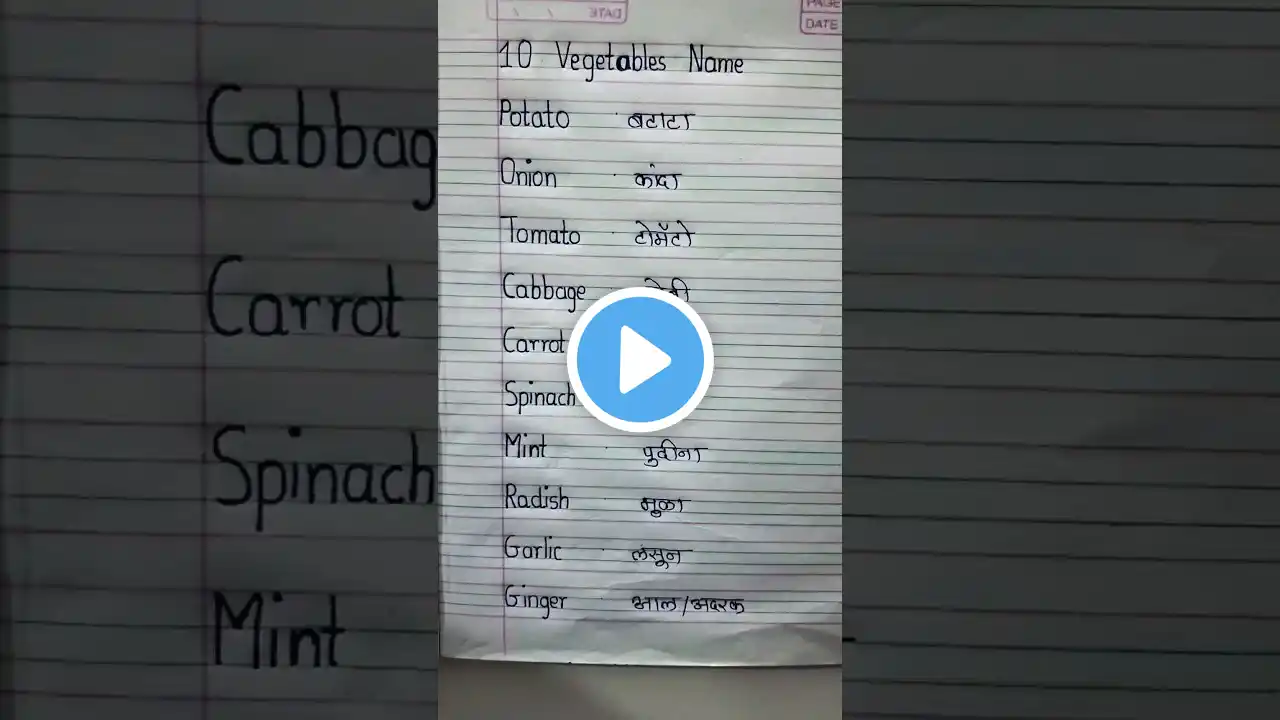 PAGE
DATE
DATE
10 Vegetables Name
Potato बटाटा
Onion कांदा
Tomato टोमॅटो
Cabbage
Carrot
Spinach
Mint पुदीना
Radish मुळा
Garlic लसून
Ginger आाल/अदरक
Cabbag
Carrot
Spinach
Mint